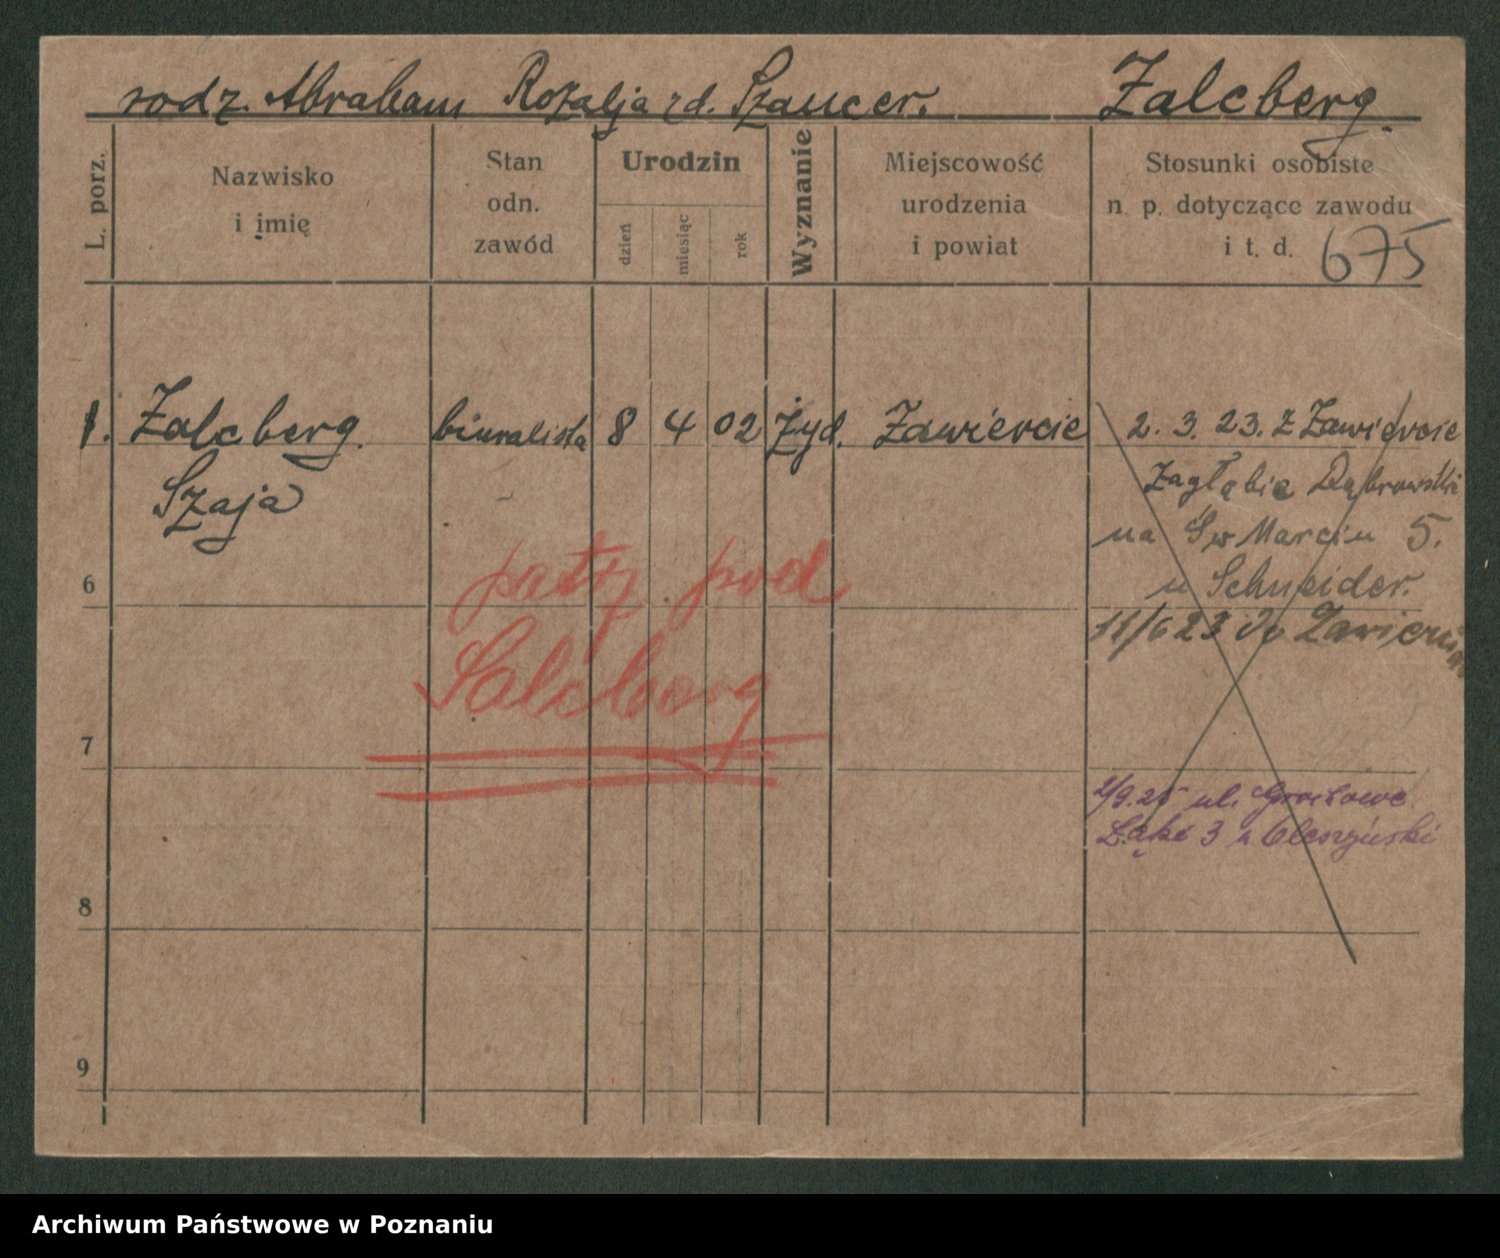 rodz. Abraham Rozalja zd. Szancer. Zalcberg.
L. porz.
Nazwisko
i imię
Stan
odn.
zawód
Urodzin
dzień
miesiąc
rok
Wyznanie
Miejscowość
urodzenia
i powiat
Stosunki osobiste
n. p. dotyczące zawodu
i t. d.
675
1. Zalcberg. biuralista 8 4 02 Żyd. Zawiercie
Szaja
2. 3. 23. z Zawiercie
Zagłębie Dąbrowskie
na Św Marcin 5.
u Schneider.
11/6 23 do Zawiercia
patrz pod
Salcberg
2/9.25 ul. Grochowe
Łąki 3 u Oleszyński
6
7
8
9
Archiwum Państwowe w Poznaniu